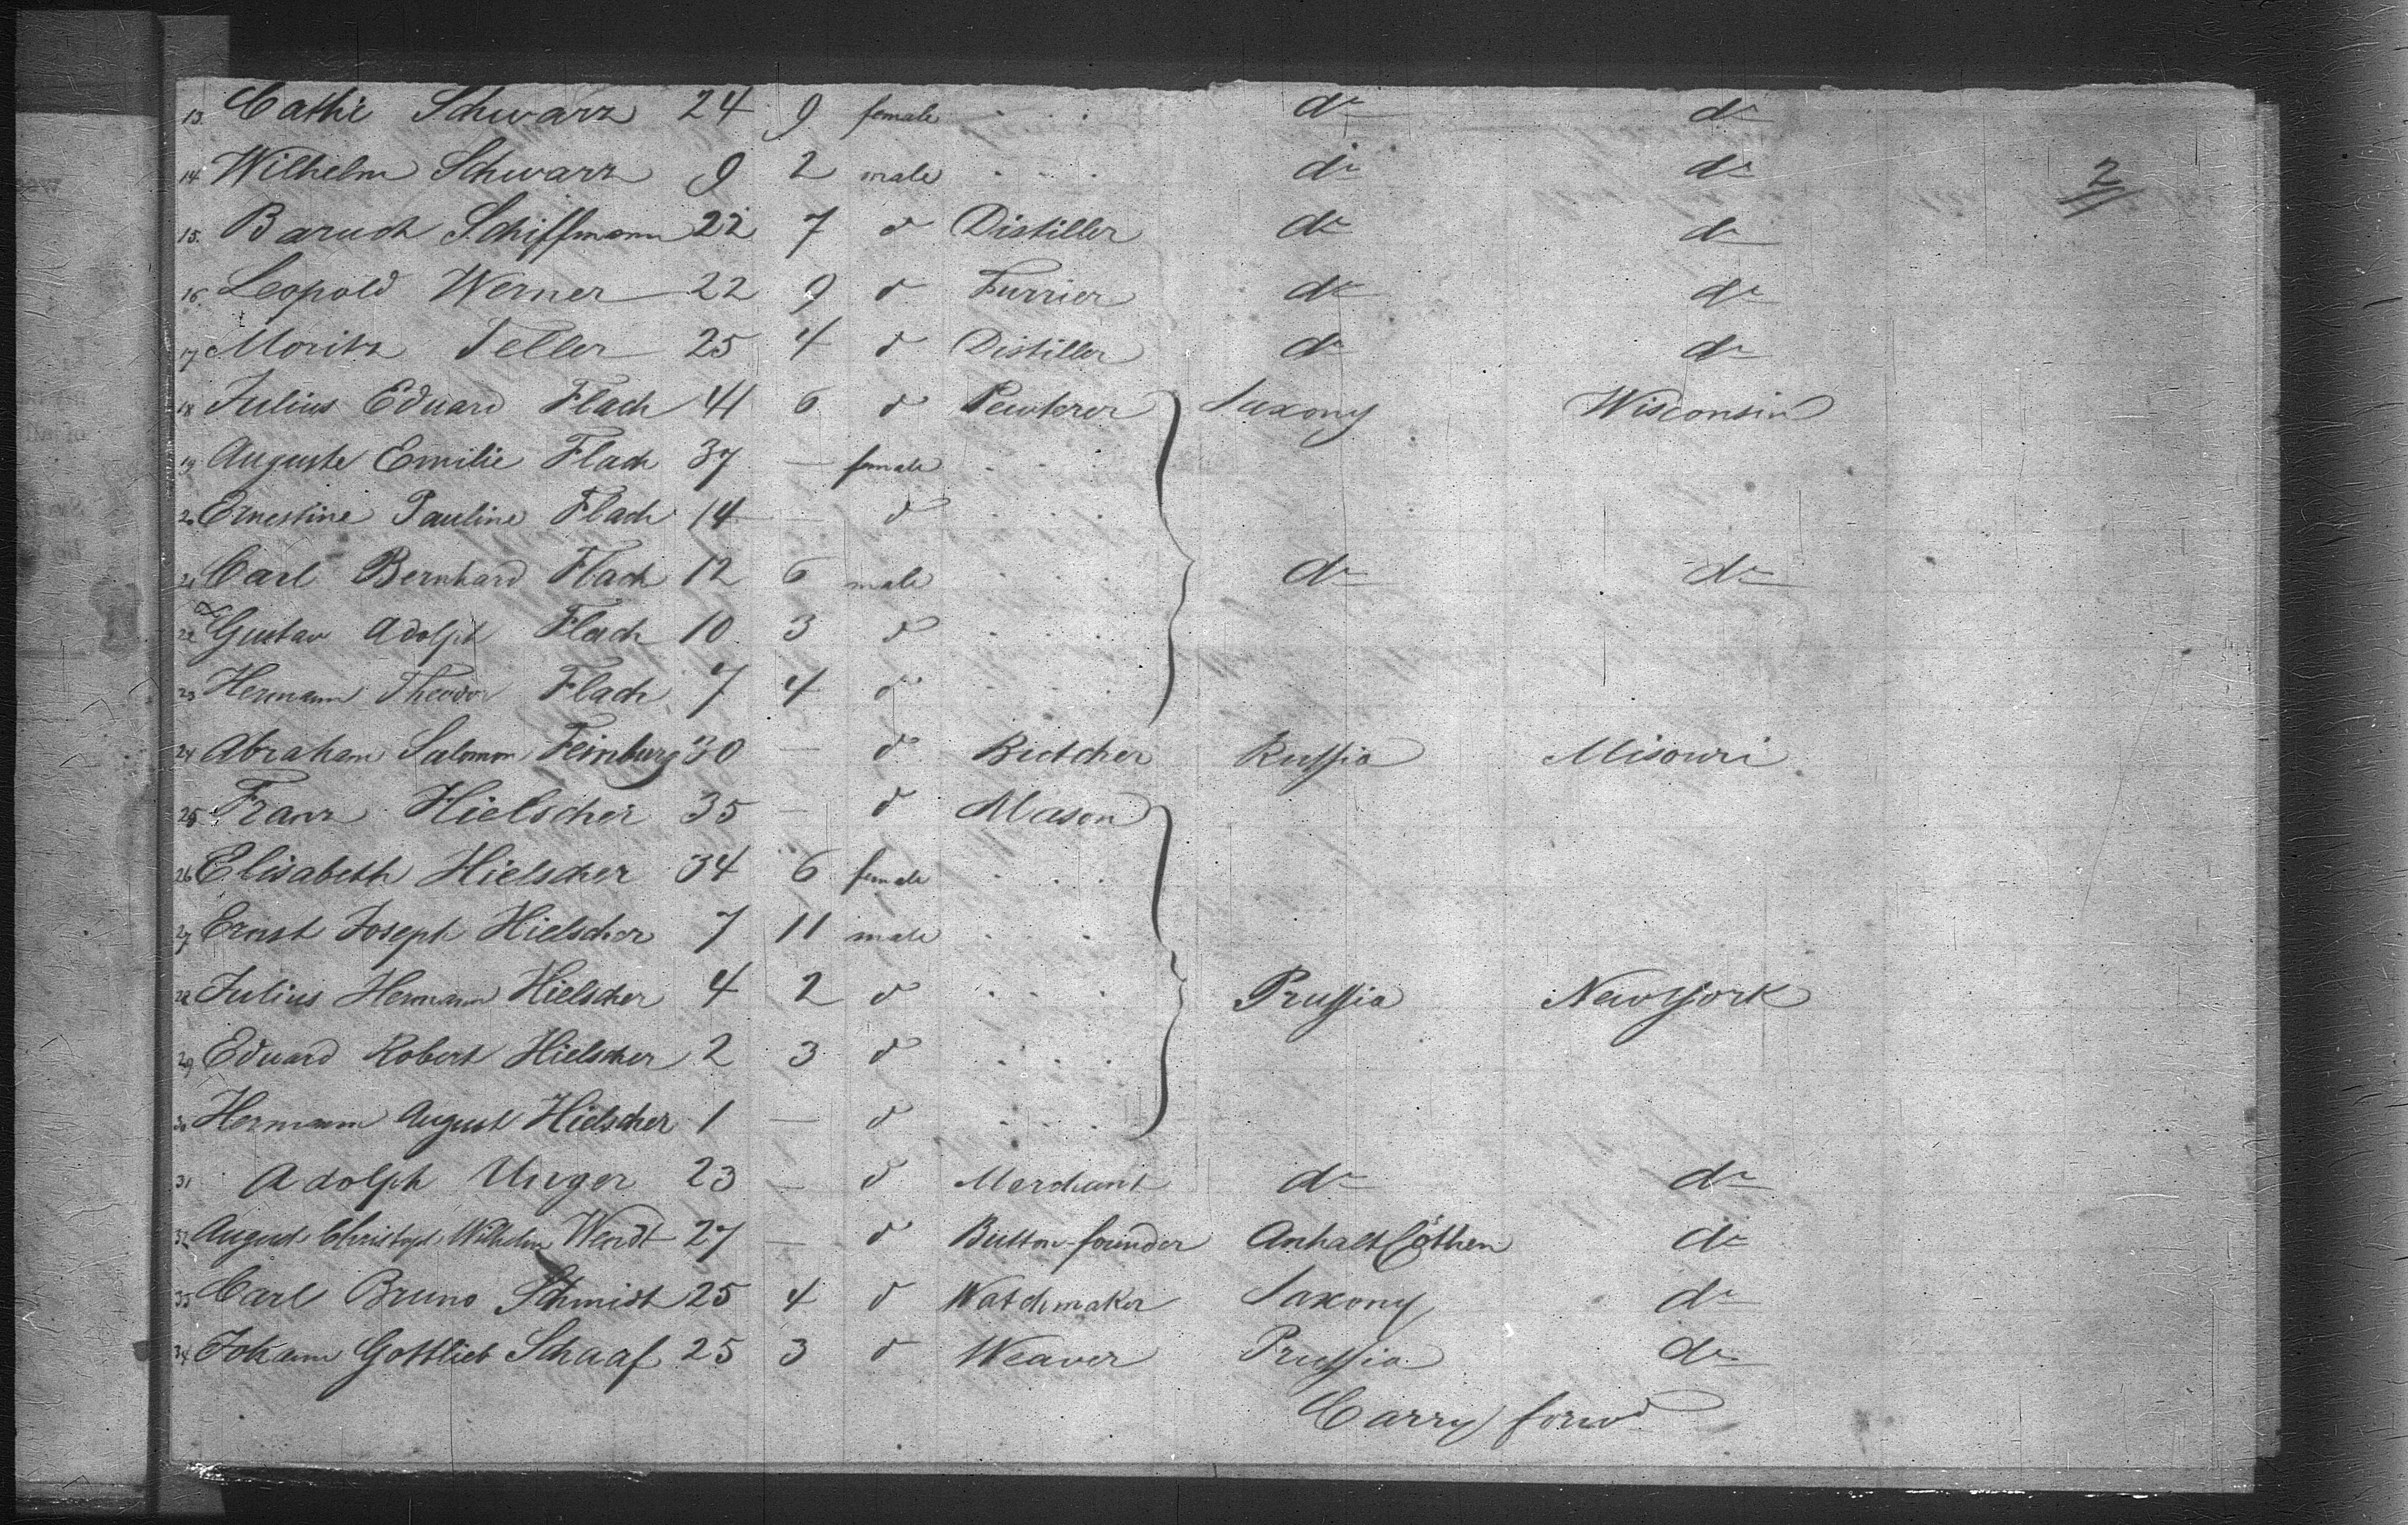 13. Cathi Schwarz 24 9 female do do
14. Wilhelm Schwarz 9 2 male do do
2
15. Baruch Schiffmann 22 7 do Distiller do do
16. Leopold Werner 22 9 do Furrier do do
17 Moritz Teller 25 4 do Distiller do do
18 Julius Eduard Flach 41 6 do Pewterer Saxony Wisconsin
19 Auguste Emilie Flach 37 — female
20 Ernestine Pauline Flach 14 — do
21 Carl Bernhard Flach 12 6 male do do
22 Gustav Adolph Flach 10 3 do
23 Hermann Theodor Flach 7 4 do
24 Abraham Salomon Feinburg 30 — do Butcher Russia Misouri
25 Franz Hielscher 35 — do Mason
26 Elisabeth Hielscher 34 6 female
27 Ernst Joseph Hielscher 7 11 male
28 Julius Hermann Hielscher 4 2 do Prussia New York
29 Eduard Robert Hielscher 2 3 do
30 Hermann August Hielscher 1 — do
31 Adolph Unger 23 — do Merchant do do
32 August Christoph Wilhelm Wendt 27 — do Button-founder Anhalt Cöthen do
33 Carl Bruno Schmidt 25 4 do Watchmaker Saxony do
34 Johann Gottlieb Schaaf 25 3 do Weaver Prussia do
Carry forwd